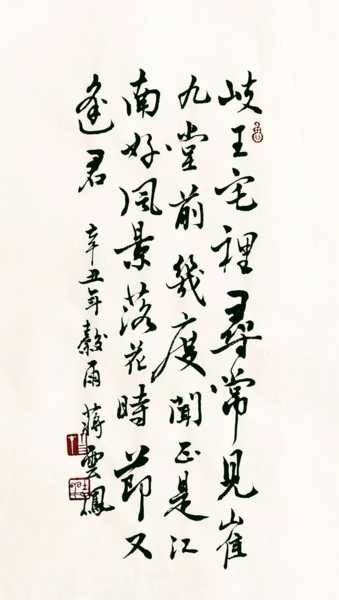 岐王宅裡尋常見崔
九堂前幾度聞正是江
南好風景落花時節又
逢君
辛丑年穀雨 蔣雲鳳